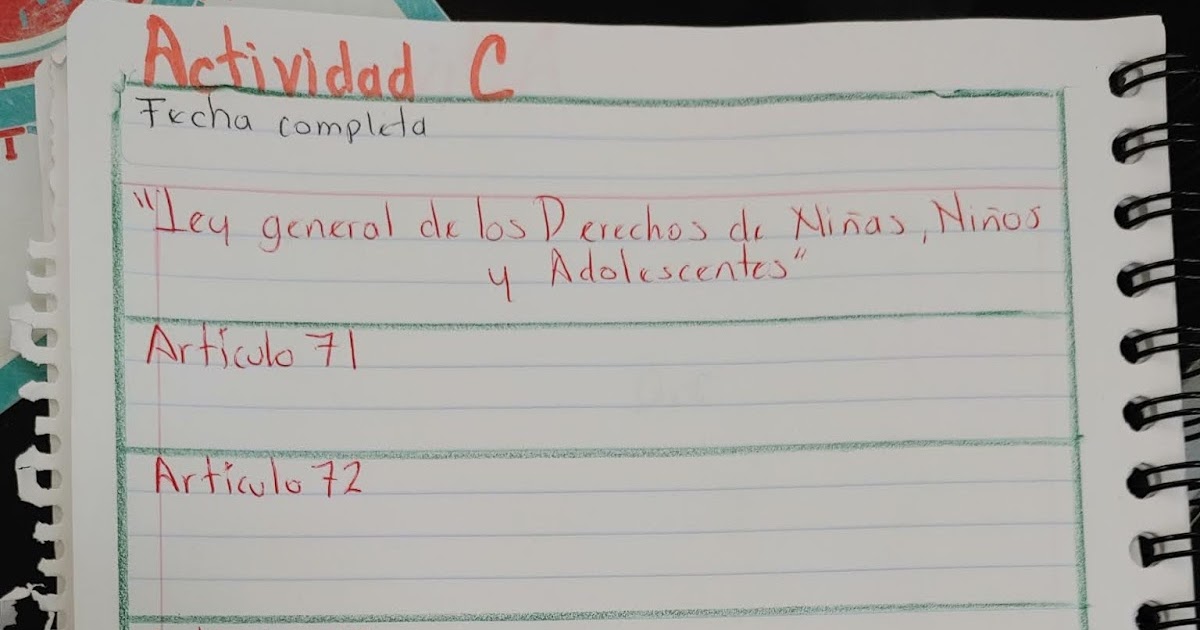 Actividad C
Fecha completa
"Ley general de los Derechos de Niñas, Niños
y Adolescentes"
Artículo 71
Artículo 72